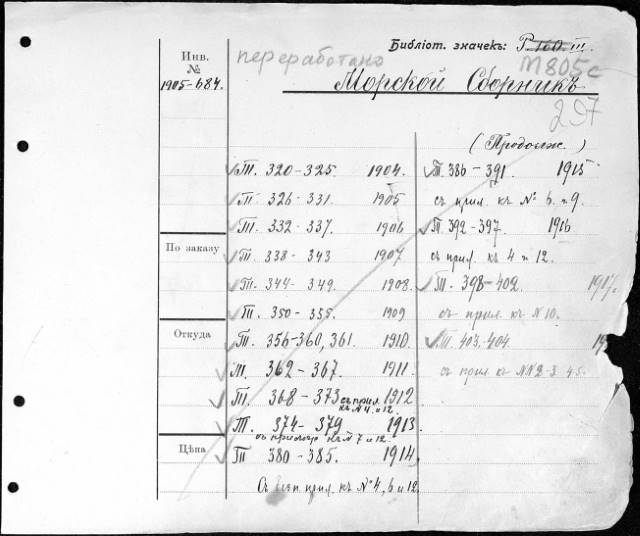 Библіот. значекъ: Р. 160. III.
М 805 с
переработано
Морской Сборникъ
297
Инв. №
1905-684.
По заказу
Откуда
Цѣна
Т. 320-325. 1904.
Т. 326-331. 1905
Т. 332-337. 1906
Т. 338-343 1907
Т. 344-349. 1908.
Т. 350-355. 1909
Т. 356-360, 361. 1910.
Т. 362-367. 1911.
Т. 368-373 съ прил. къ №4 и 12. 1912
Т. 374-379 1913.
съ прилож къ № 7 и 12.
Т 380-385. 1914.
Съ прил. къ № 4, 6 и 12.
(Продолж.)
Т. 386-391. 1915
съ прил. къ № 6. и 9.
Т 392-397. 1916
съ прил. къ 4 и 12.
Т. 398-402. 1917.
съ прил. къ N 10.
Т 403-404
съ прил къ NN 2-3 45.